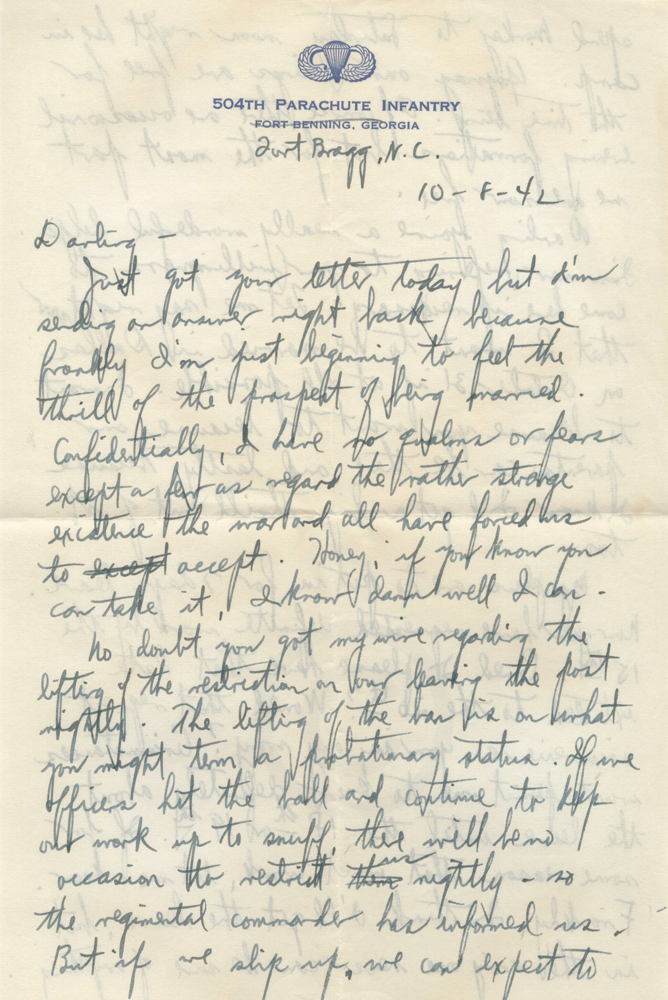 504TH PARACHUTE INFANTRY
FORT BENNING, GEORGIA
Fort Bragg, N.C.
10-8-42
Darling -
Just got your letter today but I'm
sending an answer right back, because
frankly I'm just beginning to feel the
thrill of the prospect of being married.
Confidentially, I have no qualms or fears
except a few as regard the rather strange
existence the war and all have forced us
to except accept. Honey, if you know you
can take it, I know damn well I can.
No doubt you got my wire regarding the
lifting of the restriction on our leaving the post
nightly. The lifting of the ban is on what
you might term a probationary status. If we
officers hit the ball and continue to keep
our work up to snuff, there will be no
occasion to restrict them us nightly - so
the regimental commander has informed us.
But if we slip up, we can expect to